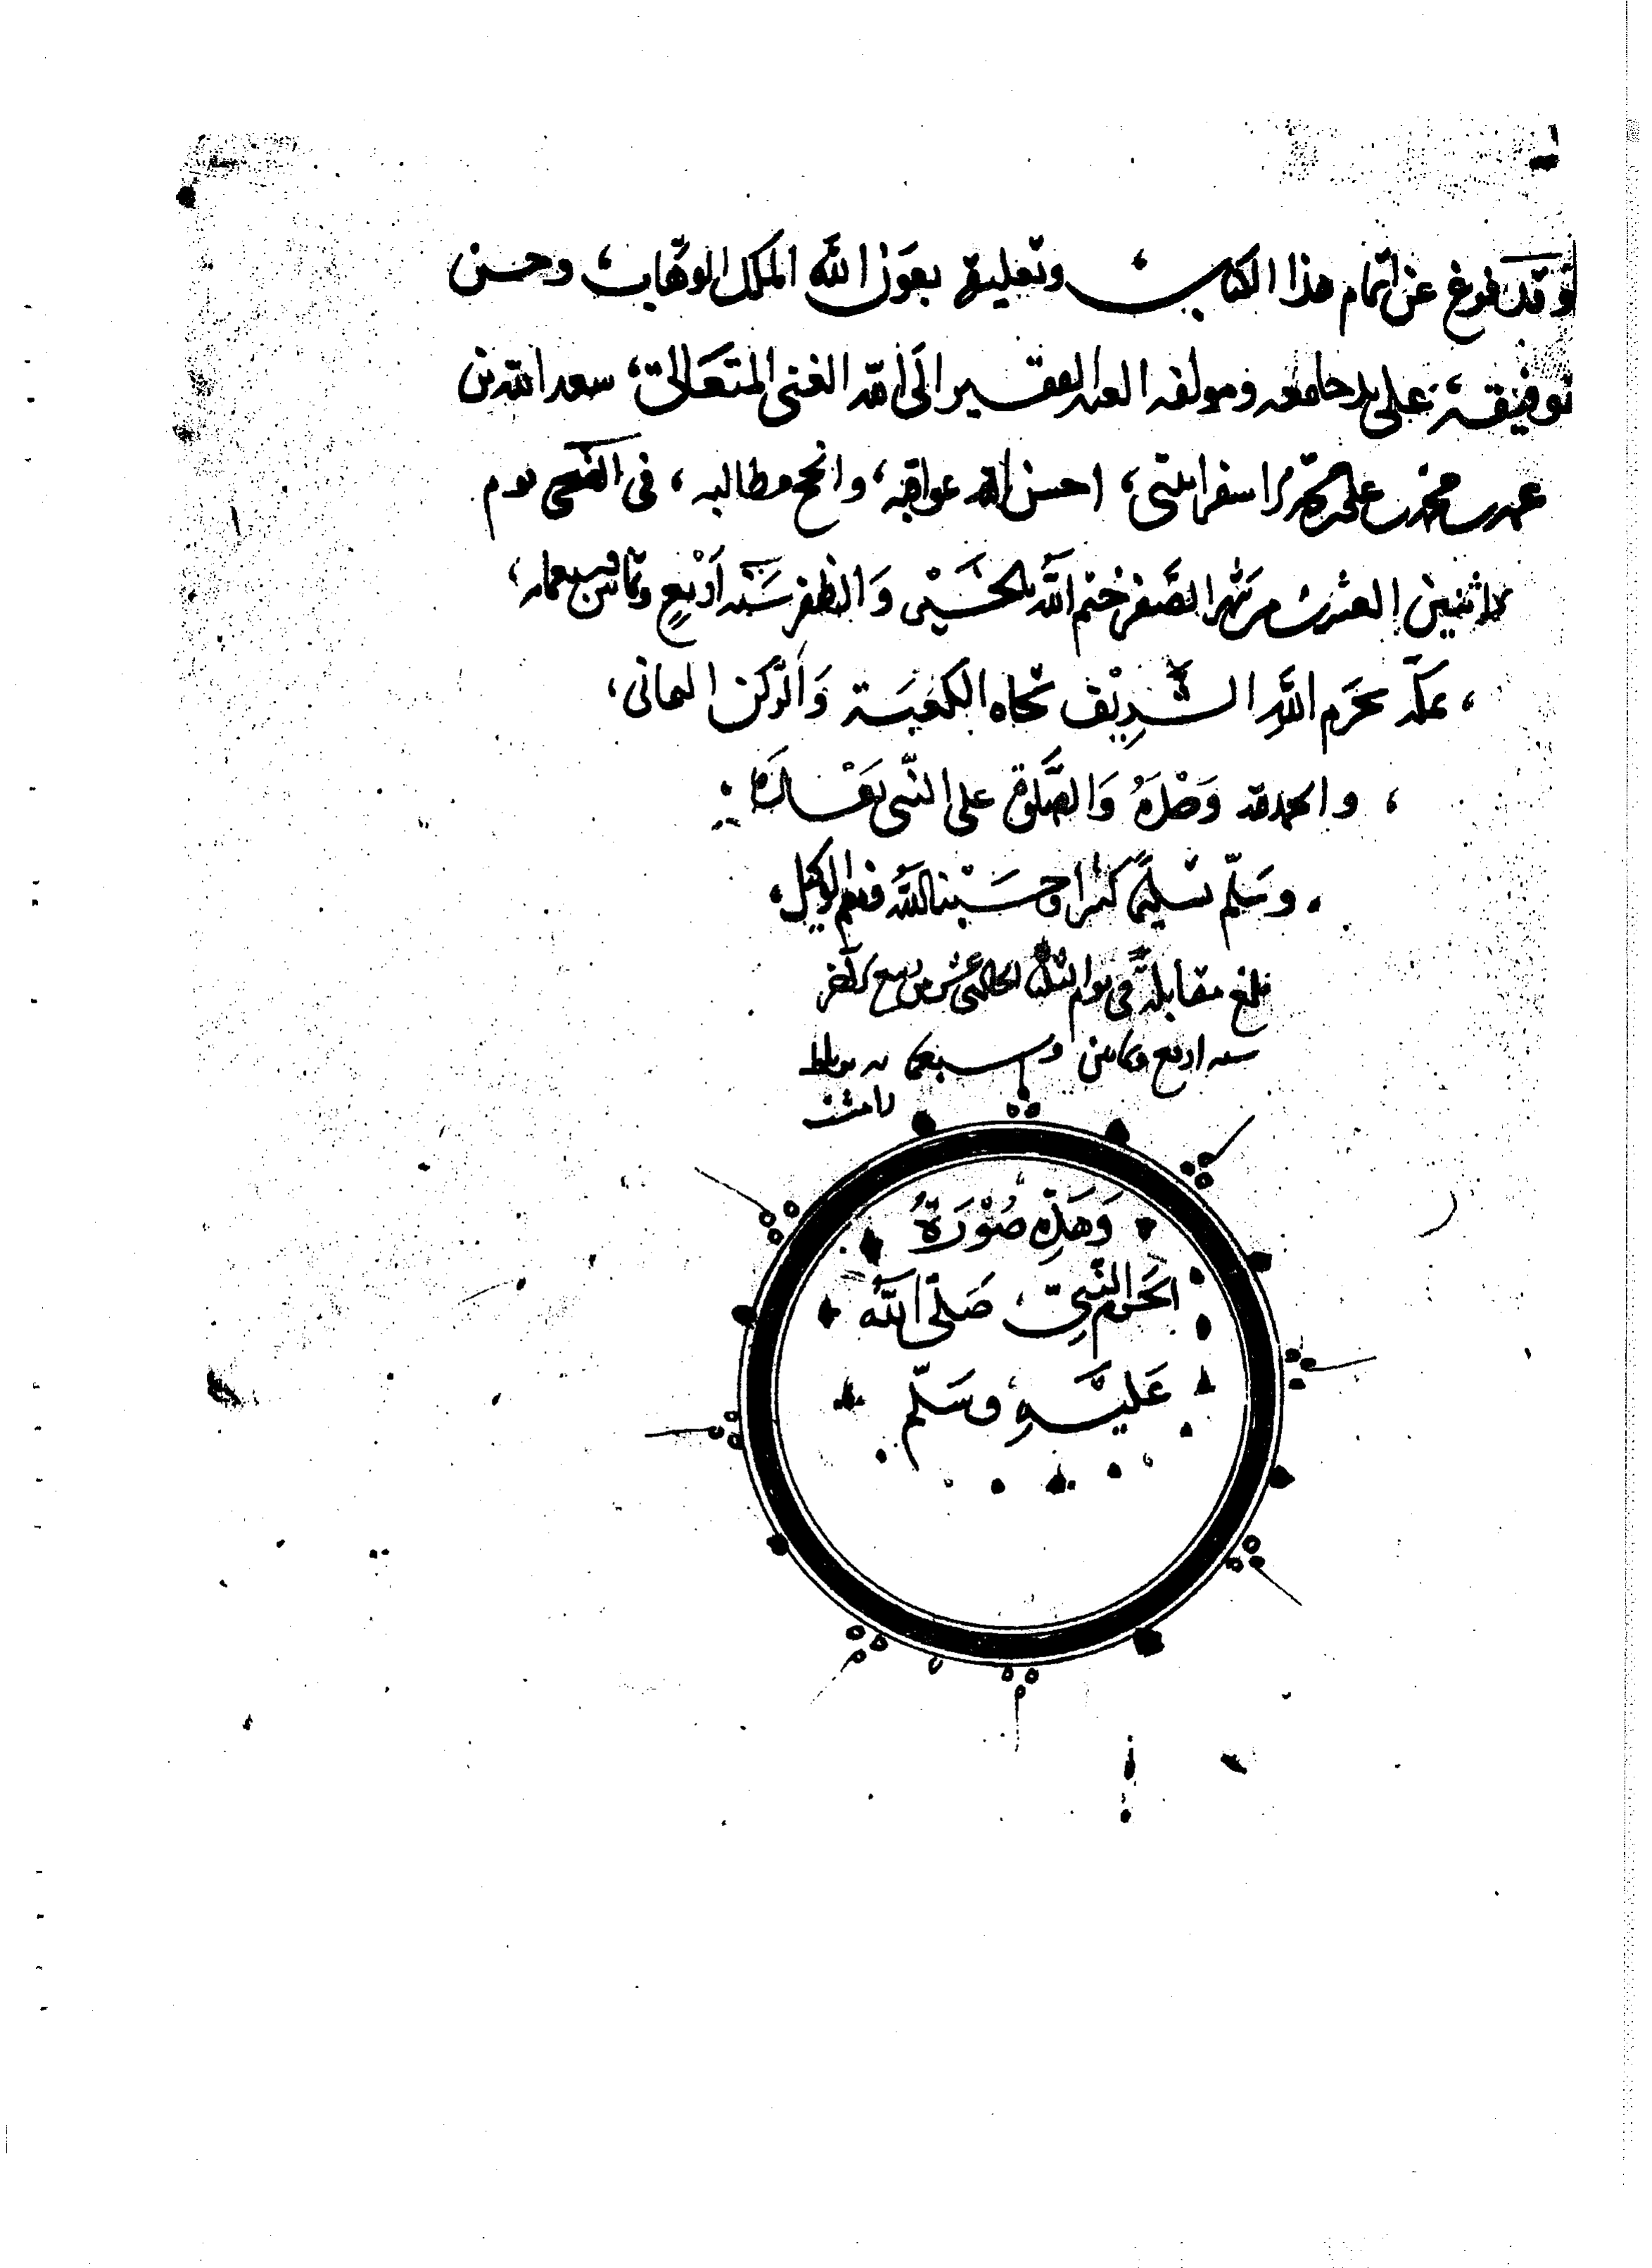 وقد فرغ عن اتمام هذا الكتاب وتعليقه بعون الله الملك الوهاب، وحسن
توفيقه، على يد جامعه ومولفه العبد الفقير الى الله الغنى المتعالى، سعد الله بن
عمر بن محمد بن على الاسفراينى، احسن الله عواقبه، وانجح مطالبه، فى الضحى يوم
الاثنين العشرين من شهر الصفر ختم الله بالحسنى وَالظفر سَنه اَربعٍ وثمانين وسبعمايه،
، بمكه بحرم اللهِ الشريف تجاه الكعبَة وَالركن اليمانى،
، والحمد لله وَحْدَهُ وَالصَّلوة على النَّبى بَعْدَهُ
. وسَلّم تسليمًا كثيرا وحَسْبنا الله فنعم الوكيل،
بلغ مقابلةً فى يوم الثلثا الحادى عشر من ربيع الاخر
سنه اربع وثمانين وسبعمايه برباط
رامشت
وَهَذِهِ صُوْرَةُ
الحرم النَّبِىّ، صَلَّى اللَّه
عَلَيْهِ وسَلّم